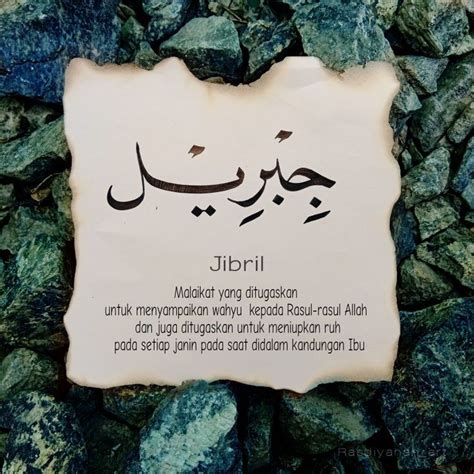 جِبْرِيْل
Jibril
Malaikat yang ditugaskan
untuk menyampaikan wahyu kepada Rasul-rasul Allah
dan juga ditugaskan untuk meniupkan ruh
pada setiap janin pada saat didalam kandungan Ibu